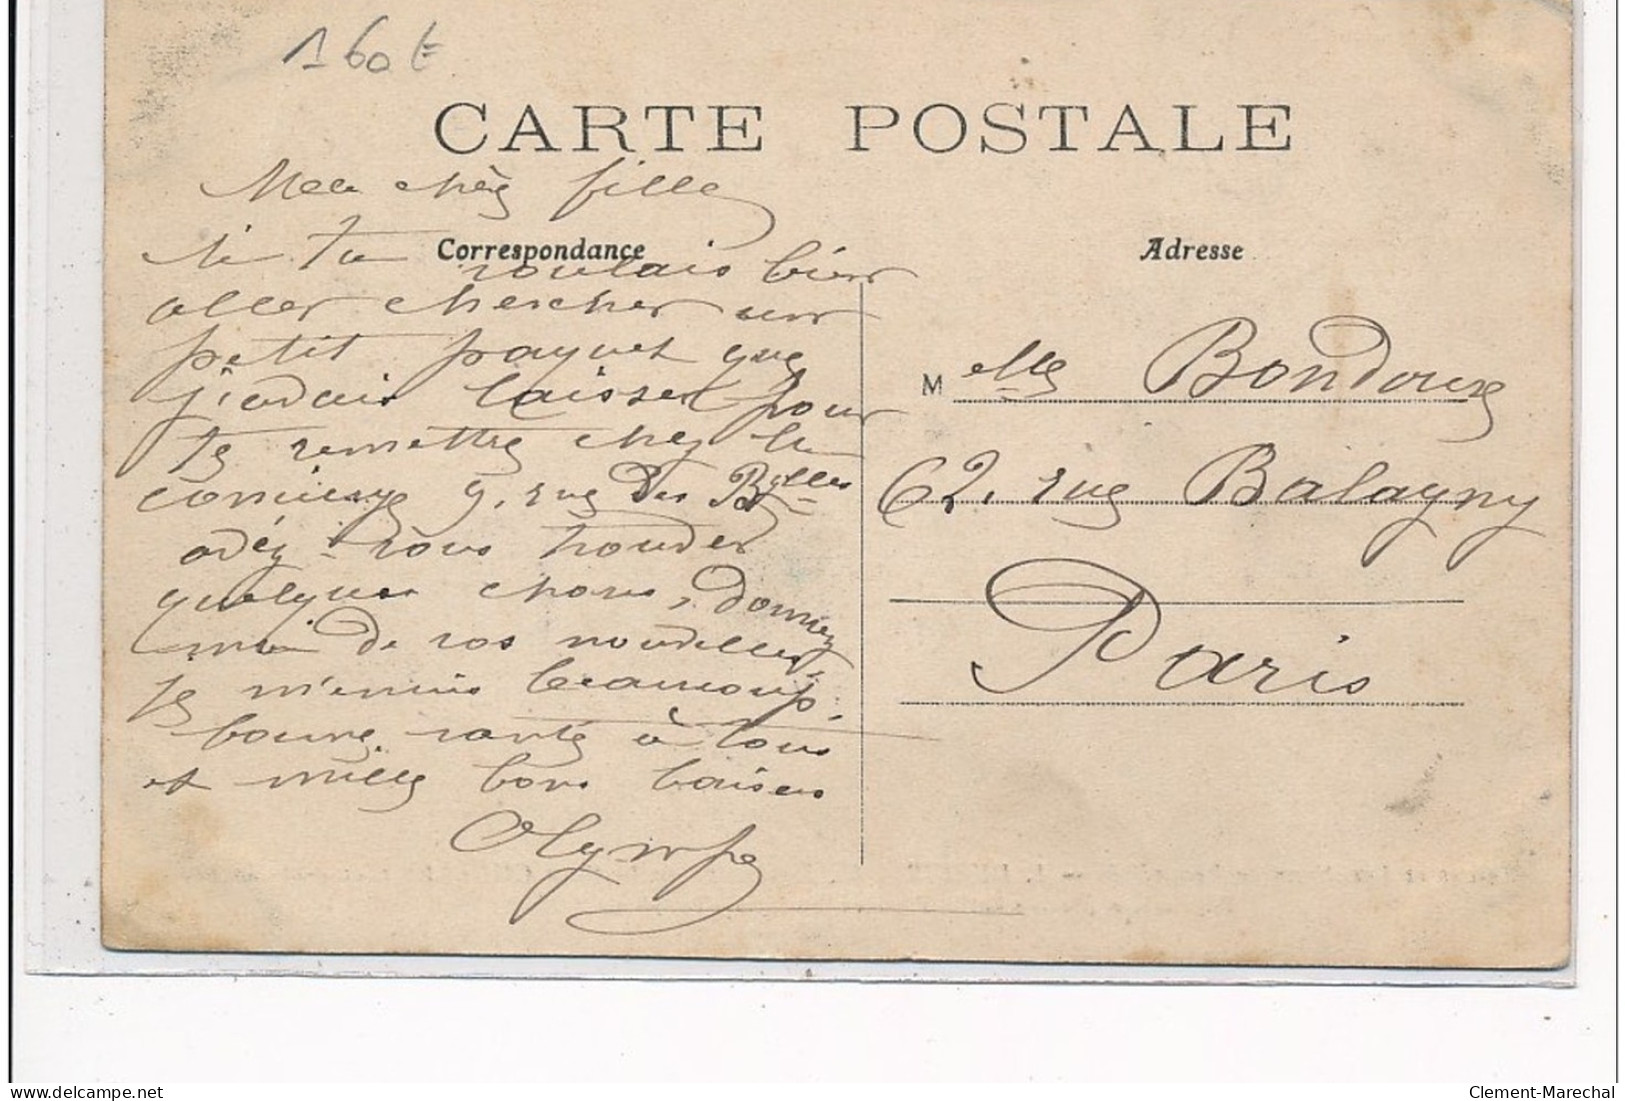 160 €
CARTE POSTALE
Ma chère fille
Correspondance
Adresse
si tu voulais bien
aller chercher un
petit paquet que
j'avais laisser pour
te remettre chez la
concierge 9, rue des
avez-vous trouver
quelques chose, donnez
moi de vos nouvelles,
je m'ennuis beaucoup.
bonne santé à tous
et mille bons baisers
Olympe
Melle Bondoux
62, rue Balagny
Paris
delcampe.net
Clement-Marechal